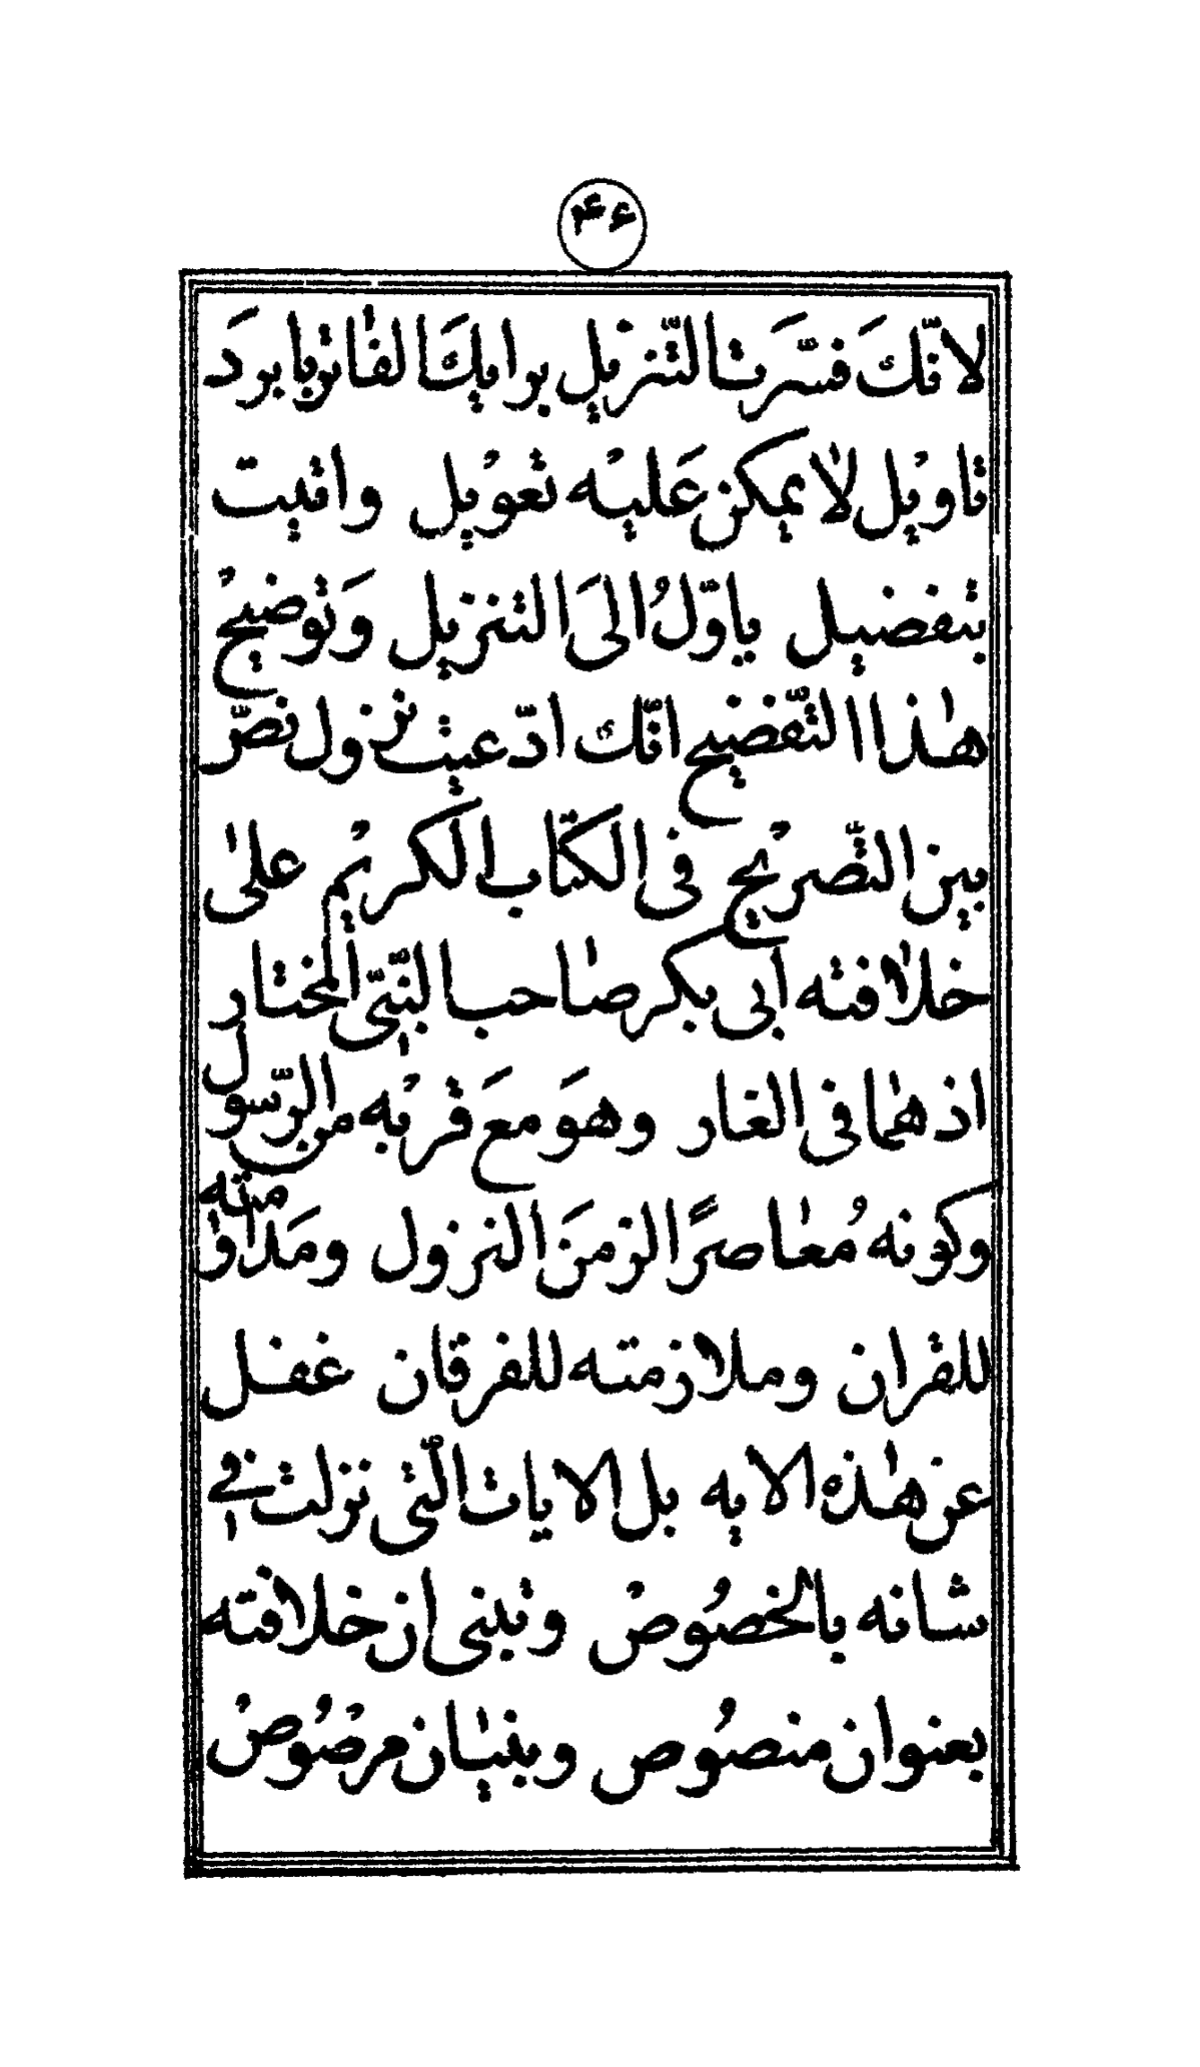 ۴۶
لانّكَ فسّرَت التّنزيل برايكَ الفاتر بابرد
تاويل لا يمكن عَليْه تعْويل واتيت
بتفضيل ياوّلُ الىَ التنزيل وَتوضيحْ
هٰذا التّفضيح انّك ادّعيت نزول نصّ
بين التّصريْح فى الكتّاب الكريْم علىٰ
خلافته أبى بكر صٰاحب النّبىّ المختار
اذ هٰما فى الغار وهوَ معَ قربْه من الرّسول
وكونه مُعٰاصرًا لزمنَ النزول ومَداومته
للقران وملازمته للفرقان غفل
عن هٰذه الايه بل الايات الّتى نزلت فى
شانه بالخصُوصْ وتبنى ان خلافته
بعنوان منصُوص وبنيٰان مرصْوُصْ